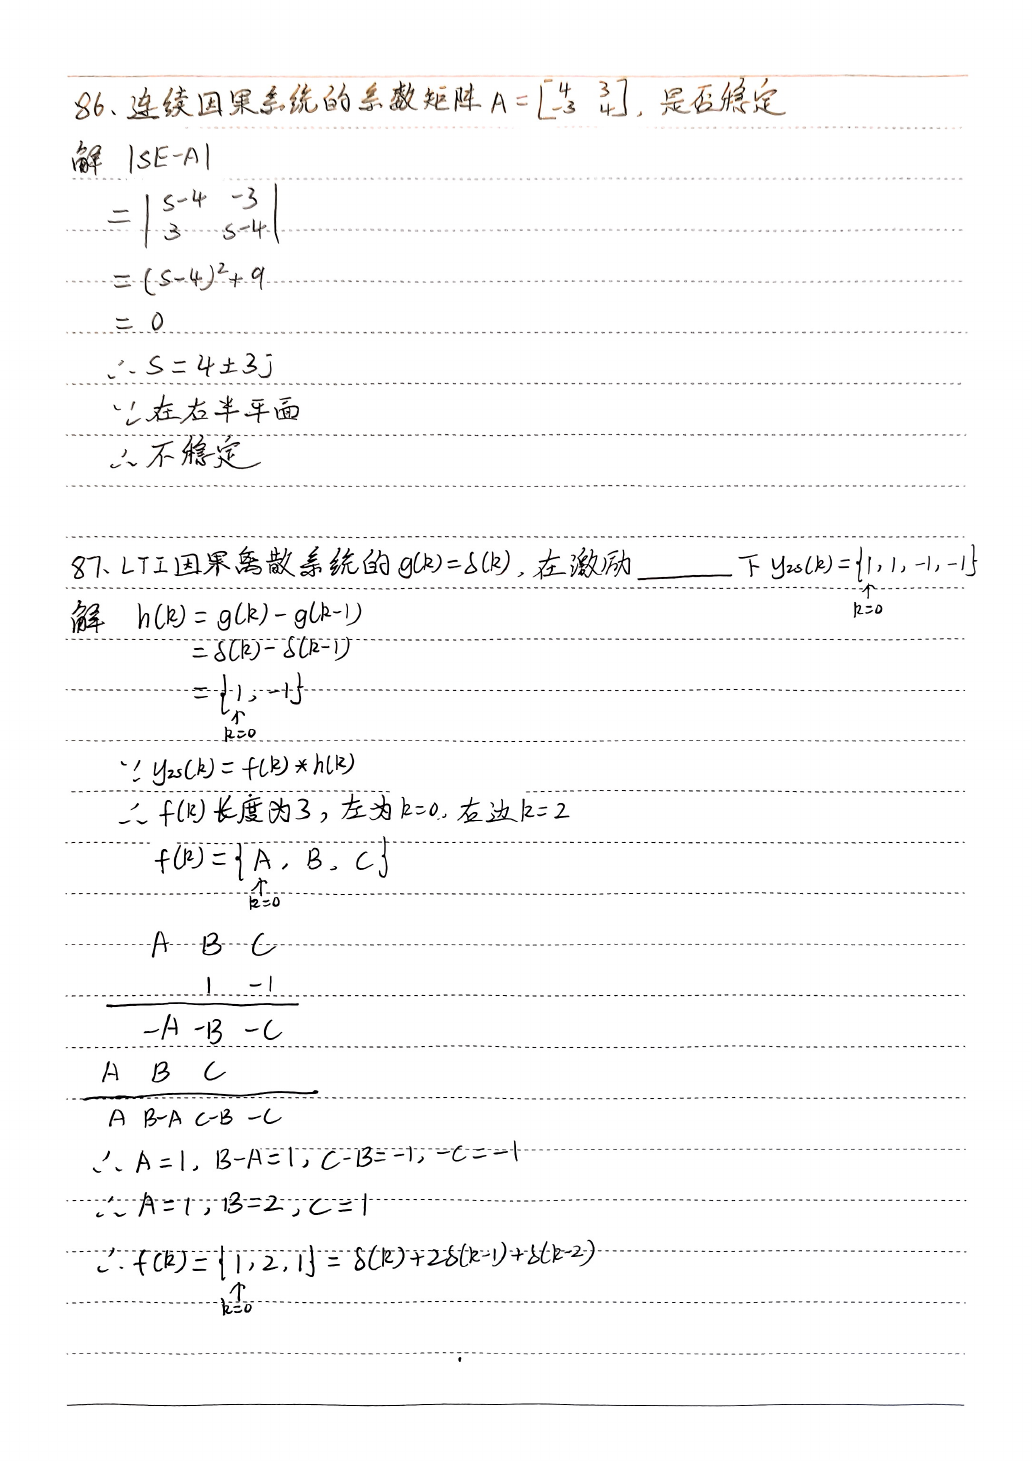 86、连续因果系统的系数矩阵 A = [4 3 -3 4], 是否稳定
解 |SE-A|
= |S-4 -3 3 S-4|
= (S-4)²+9
= 0
∴ S = 4±3j
∵ 在右半平面
∴ 不稳定
87、LTI因果离散系统的 g(k)=δ(k), 在激励______下 yzs(k)={1, 1, -1, -1}
↑
k=0
解 h(k) = g(k) - g(k-1)
= δ(k) - δ(k-1)
= {1, -1}
↑
k=0
∵ yzs(k) = f(k) * h(k)
∴ f(k) 长度为3, 左为k=0, 右边k=2
f(k) = {A, B, C}
↑
k=0
A B C
1 -1
-A -B -C
A B C
A B-A C-B -C
∴ A=1, B-A=1, C-B=-1, -C=-1
∴ A=1, B=2, C=1
∴ f(k) = {1, 2, 1} = δ(k)+2δ(k-1)+δ(k-2)
↑
k=0